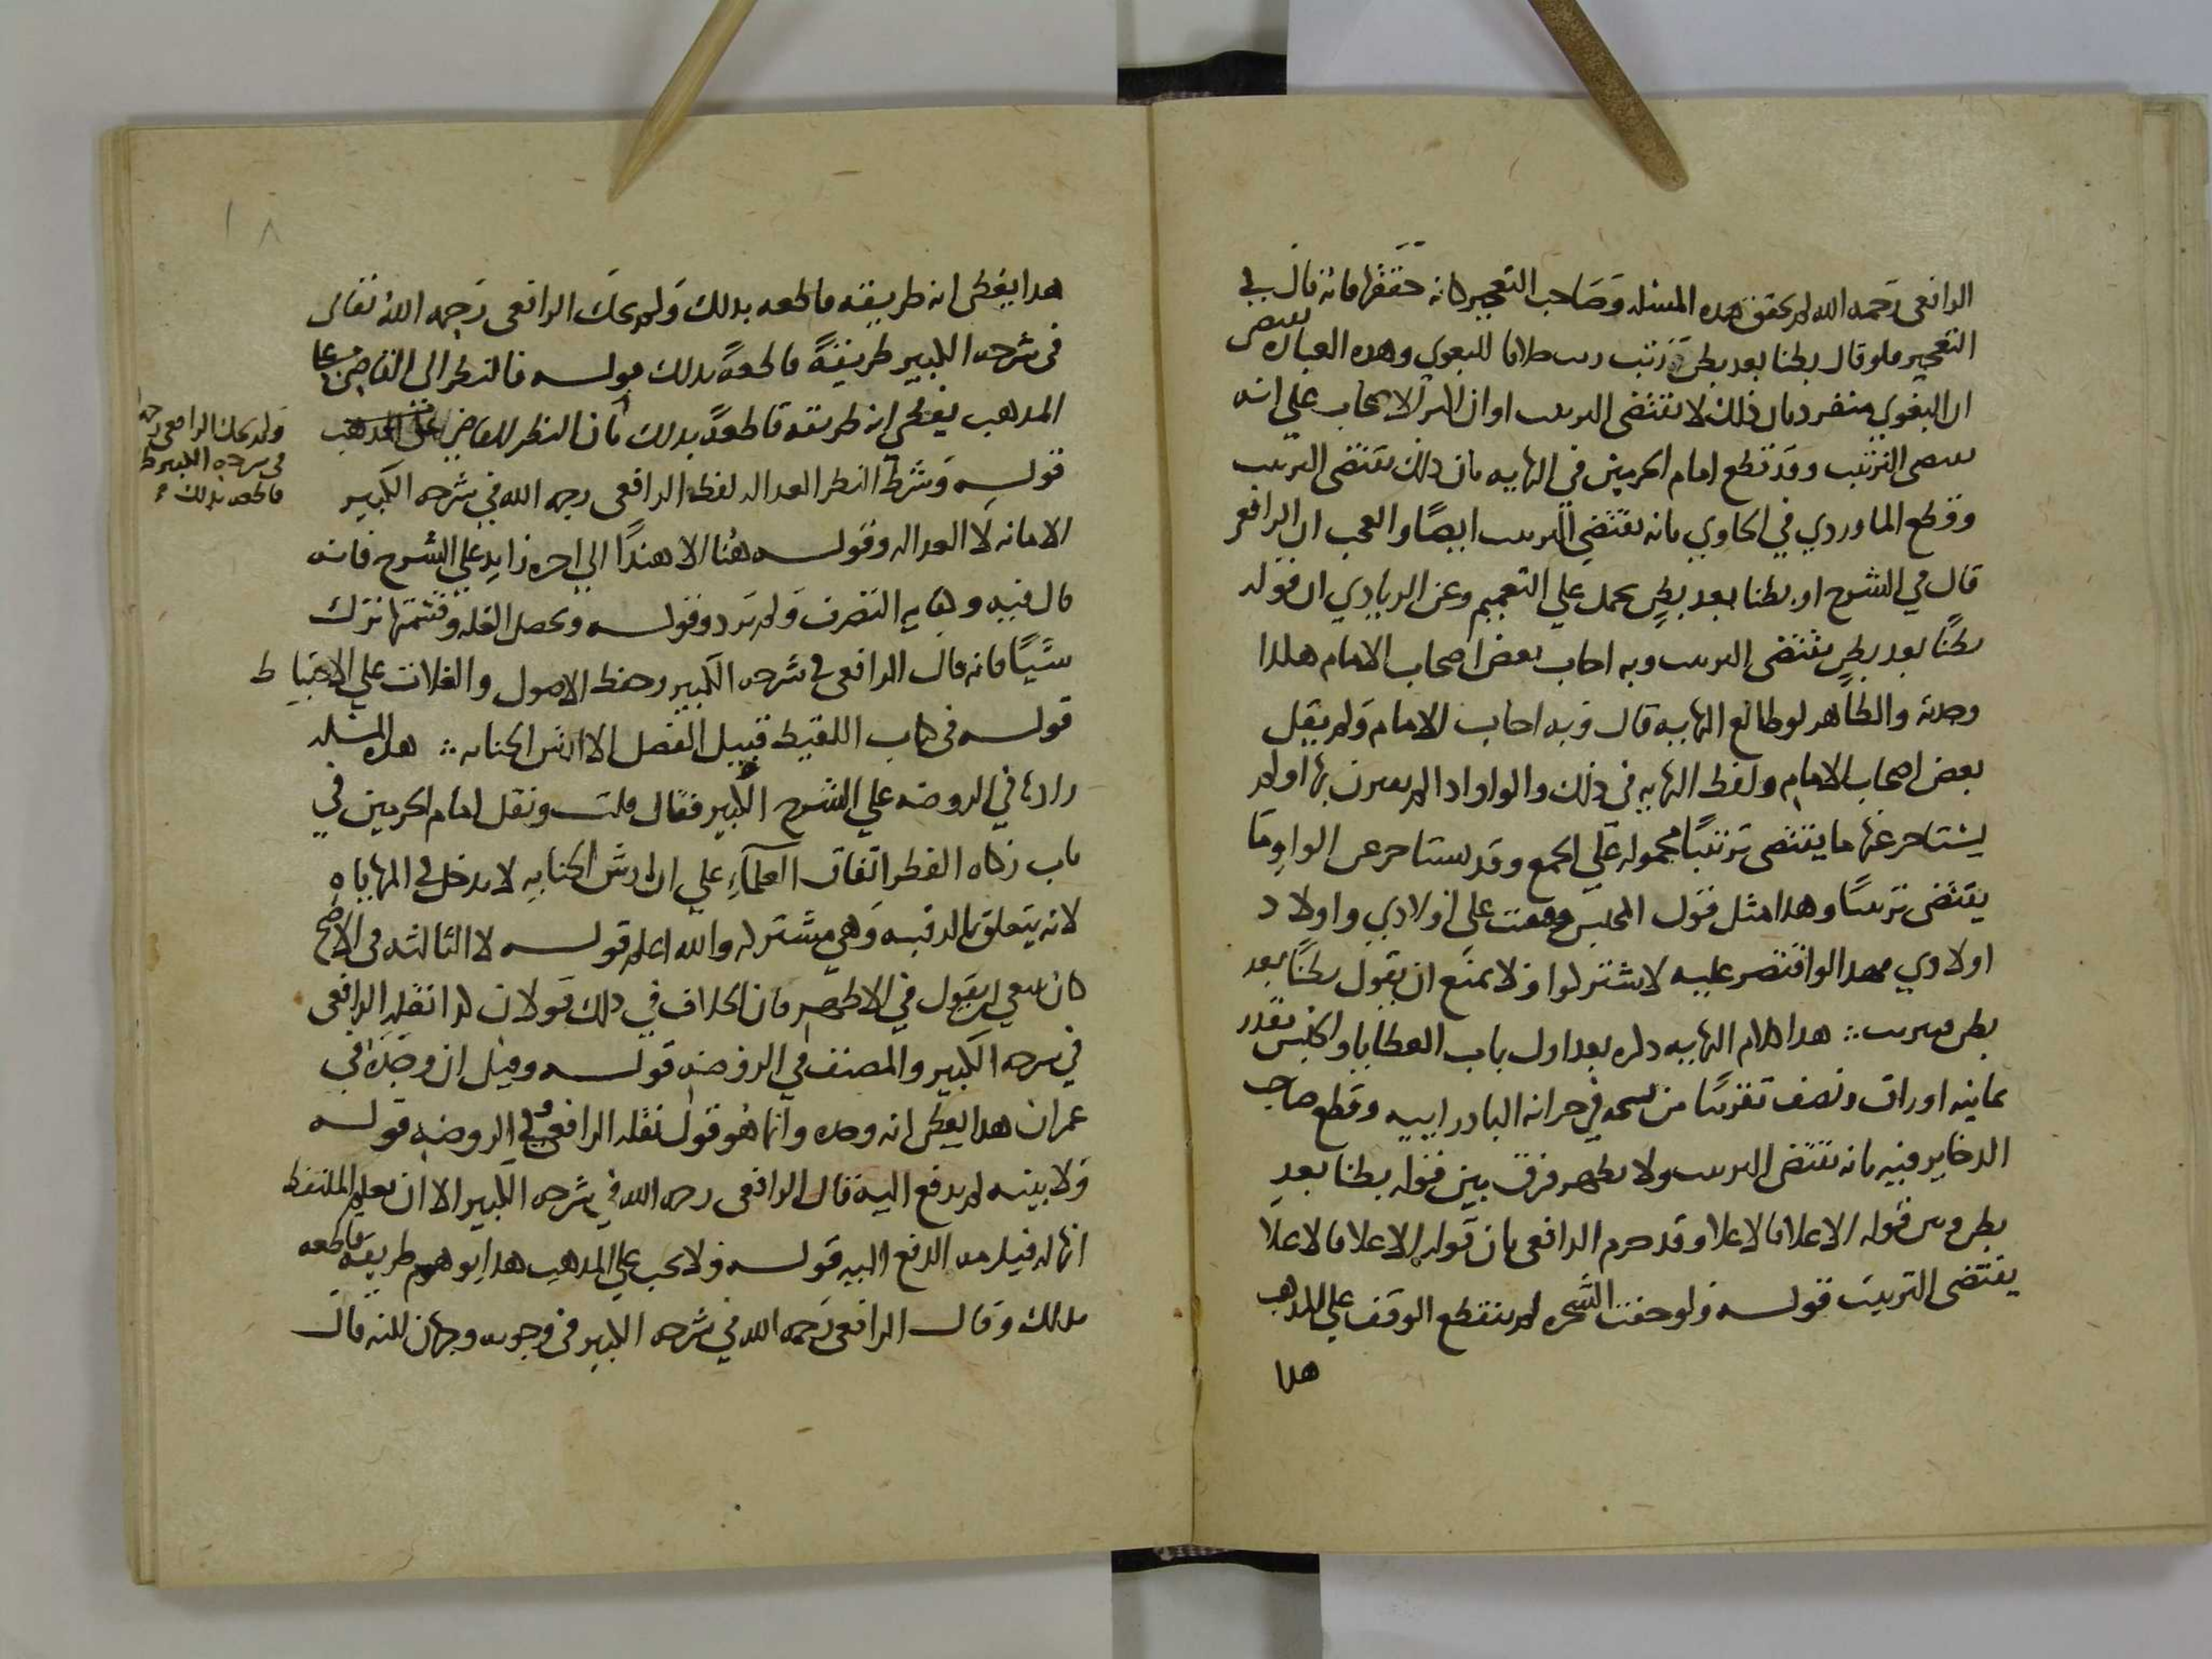 الرافعي رحمه الله لم يحقق هذه المسئلة وصاحب التعجيز كانه حققها فانه قال في
التعجيز فلو قال بطنا بعد بطن رتب خلافا للبغوي وهذه العبارة تقتضي
ان البغوي منفرد بان ذلك لا يقتضي الترتيب او ان اكثر الاصحاب على انه
يقتضي الترتيب وقد قطع امام الحرمين في النهاية بان ذلك يقتضي الترتيب
وقطع الماوردي في الحاوي بانه يقتضي الترتيب ايضًا والعجب ان الرافعي
قال في الشرح او بطنا بعد بطنٍ يحمل على التعميم وعن الزيادي ان قوله
بطنًا بعد بطنٍ يقتضي الترتيب وبه اجاب بعض اصحاب الامام هكذا
والظاهر لو طالع النهاية قال وبه اجاب الامام ولم يقل
بعض اصحاب الامام ولفظ النهاية في ذلك والواو اذا لم يقترن بها او لم
يستاخر عنها ما يقتضي ترتيبًا محمولة على الجمع وقد يستاخر عن الواو ما
يقتضي ترتيبًا وهذا مثل قول المحبس وقفت على اولادي واولاد
اولادي فهذا لو اقتصر عليه لاشتركوا ولا يمنع ان يقول بطنًا بعد
بطن فيرتب ∴ هذا كلام النهاية ذكره بعد اول باب العطايا والحبس بقدر
ثمانية اوراق ونصف تقريبًا من نسخة في خزانة البادرايية وقطع صاحب
الذخاير فيه بانه يقتضي الترتيب ولا يظهر فرق بين قوله بطنا بعد
بطن وبين قوله الاعلا فالاعلا وقد جزم الرافعي بان قوله الاعلا فالاعلا
يقتضي الترتيب قوله ولو جفت الشجرة لم ينقطع الوقف على المذهب
هذا
١٨
هذا يعطي ان طريقة قاطعة بذلك ولم يحك الرافعي رحمه الله تعالى
في شرحه الكبير طريقةً قاطعةً بذلك قوله فالنظر الى القاضي على
المذهب يعطي ان طريقة قاطعةً بذلك بان النظر للقاضي على المذهب
ولم يحك الرافعي رحمه
في شرحه الكبير ط
قاطعه بذلك
قوله وشرط النظر العدالة لفظ الرافعي رحمه الله في شرحه الكبير
الامانة لا العدالة وقوله هنا الاهتداء الى اخره زايد على الشرح فانه
قال فيه وكفاية التصرف ولم يزد وقوله وتحصل الغلة وقسمتها ترك
شيًا فانه قال الرافعي في شرحه الكبير وحفظ الاصول والغلات على الاحتياط
قوله في كتاب اللقيط قبيل الفصل الا ارش الجناية ∴ هذه المسئلة
زادها في الروضة على الشرح الكبير فقال قلت ونقل امام الحرمين في
باب زكاة الفطر اتفاق العلماء على ان ارش الجناية لا يدخل في المهاياة
لانه يتعلق بالرقبة وهي مشتركة والله اعلم قوله لا الثالثة في الاصح
كان ينبغي ان يقول في الاظهر فان الخلاف في ذلك قولان كذا نقله الرافعي
في شرحه الكبير والمصنف في الروضة قوله وقيل ان وجده في
عمران هذا يعطي انه وجه وانما هو قول نقله الرافعي وفي الروضة قوله
ولا بينة لم يدفع اليه قال الرافعي رحمه الله في شرحه الكبير الا ان يعلم الملتقط
انها له فيلزمه الدفع اليه قوله ولا يجب على المذهب هذا يوهم طريقة قاطعة
بذلك وقال الرافعي رحمه الله في شرحه الكبير في وجوبه وجهان لكنه قال